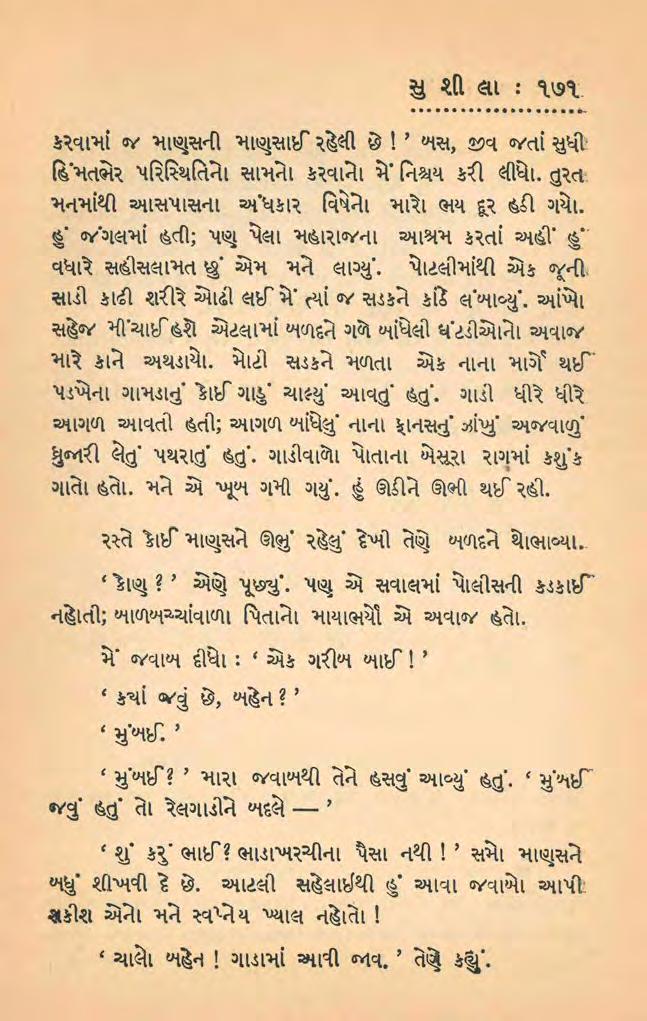 સુ શી લા : ૧૭૧
કરવામાં જ માણસની માણસાઈ રહેલી છે ! ’ બસ, જીવ જતાં સુધી
હિંમતભેર પરિસ્થિતિનો સામનો કરવાનો મેં નિશ્ચય કરી લીધો. તુરત
મનમાંથી આસપાસના અંધકાર વિષેનો મારો ભય દૂર હઠી ગયો.
હું જંગલમાં હતી; પણ પેલા મહારાજના આશ્રમ કરતાં અહીં હું
વધારે સહીસલામત છું એમ મને લાગ્યું. પોટલીમાંથી એક જૂની
સાડી કાઢી શરીરે ઓઢી લઈ મેં ત્યાં જ સડકને કાંઠે લંબાવ્યું. આંખો
સહેજ મીંચાઈ હશે એટલામાં બળદને ગળે બાંધેલી ઘંટડીઓનો અવાજ
મારે કાને અથડાયો. મોટી સડકને મળતા એક નાના માર્ગે થઈ
પડખેના ગામડાનું કોઈ ગાડું ચાલ્યું આવતું હતું. ગાડી ધીરે ધીરે
આગળ આવતી હતી; આગળ બાંધેલું નાના ફાનસનું ઝાંખું અજવાળું
ધ્રુજારી લેતું પથરાતું હતું. ગાડીવાળો પોતાના બેસૂરા રાગમાં કશુંક
ગાતો હતો. મને એ ખૂબ ગમી ગયું. હું ઊઠીને ઊભી થઈ રહી.
રસ્તે કોઈ માણસને ઊભું રહેલું દેખી તેણે બળદને થોભાવ્યા.
‘ કોણ ? ’ એણે પૂછ્યું. પણ એ સવાલમાં પોલીસની કડકાઈ
નહોતી; બાળબચ્ચાંવાળા પિતાનો માયાભર્યો એ અવાજ હતો.
મેં જવાબ દીધો : ‘ એક ગરીબ બાઈ ! ’
‘ ક્યાં જવું છે, બહેન ? ’
‘ મુંબઈ. ’
‘ મુંબઈ ? ’ મારા જવાબથી તેને હસવું આવ્યું હતું. ‘ મુંબઈ
જવું હતું તો રેલગાડીને બદલે — ’
‘ શું કરું ભાઈ ? ભાડાખરચીના પૈસા નથી ! ’ સમો માણસને
બધું શીખવી દે છે. આટલી સહેલાઇથી હું આવા જવાબો આપી
શકીશ એનો મને સ્વપ્નેય ખ્યાલ નહોતો !
‘ ચાલો બહેન ! ગાડામાં આવી જાવ. ’ તેણે કહ્યું.